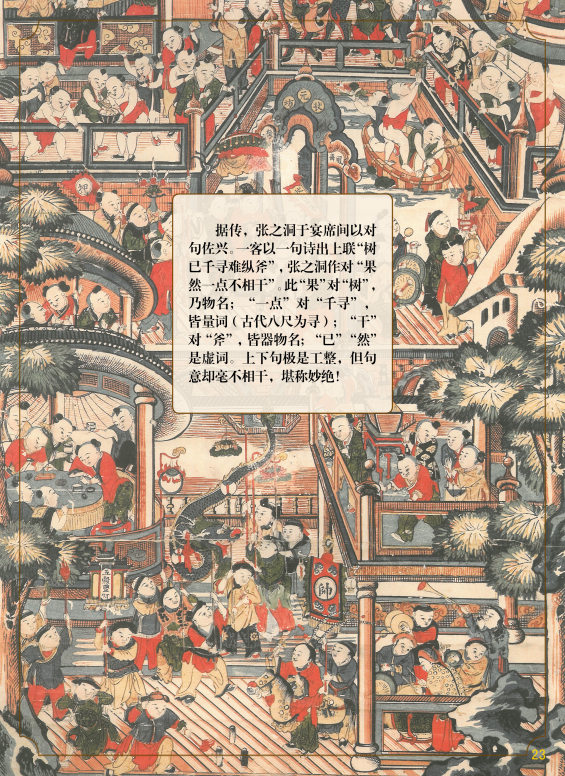 据传，张之洞于宴席间以对
句佐兴。一客以一句诗出上联“树
已千寻难纵斧”，张之洞作对“果
然一点不相干”。此“果”对“树”，
乃物名；“一点”对“千寻”，
皆量词（古代八尺为寻）；“干”
对“斧”，皆器物名；“已”“然”
是虚词。上下句极是工整，但句
意却毫不相干，堪称妙绝！
帥
23